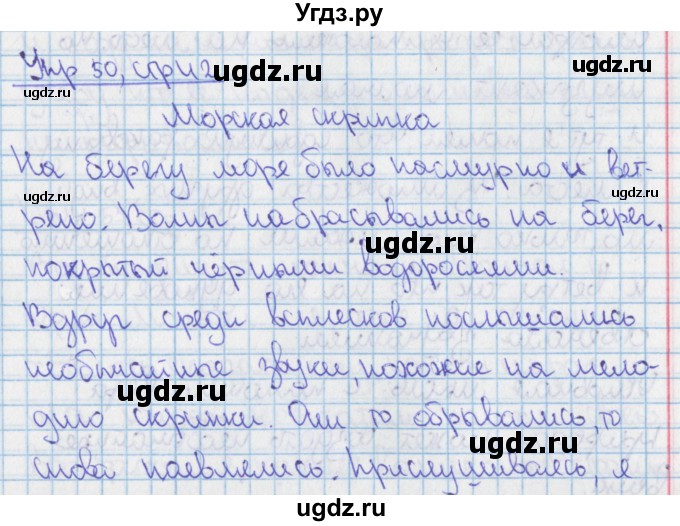 Угдз.ру
Упр 50, стр 42
ugdz.ru ugdz.ru ugdz.ru
Морская скрипка
На берегу море было пасмурно и вет-
ugdz.ru ugdz.ru
рено. Волны набрасывались на берег,
ugdz.ru
покрытый чёрными водорослями.
Вдруг среди всплесков послышались
ugdz.ru
необычайные звуки, похожие на мело-
ugdz.ru
дию скрипки. Они то обрывались, то
снова появлялись. Прислушиваясь, я
ugdz.ru ugdz.ru
ugdz.ru